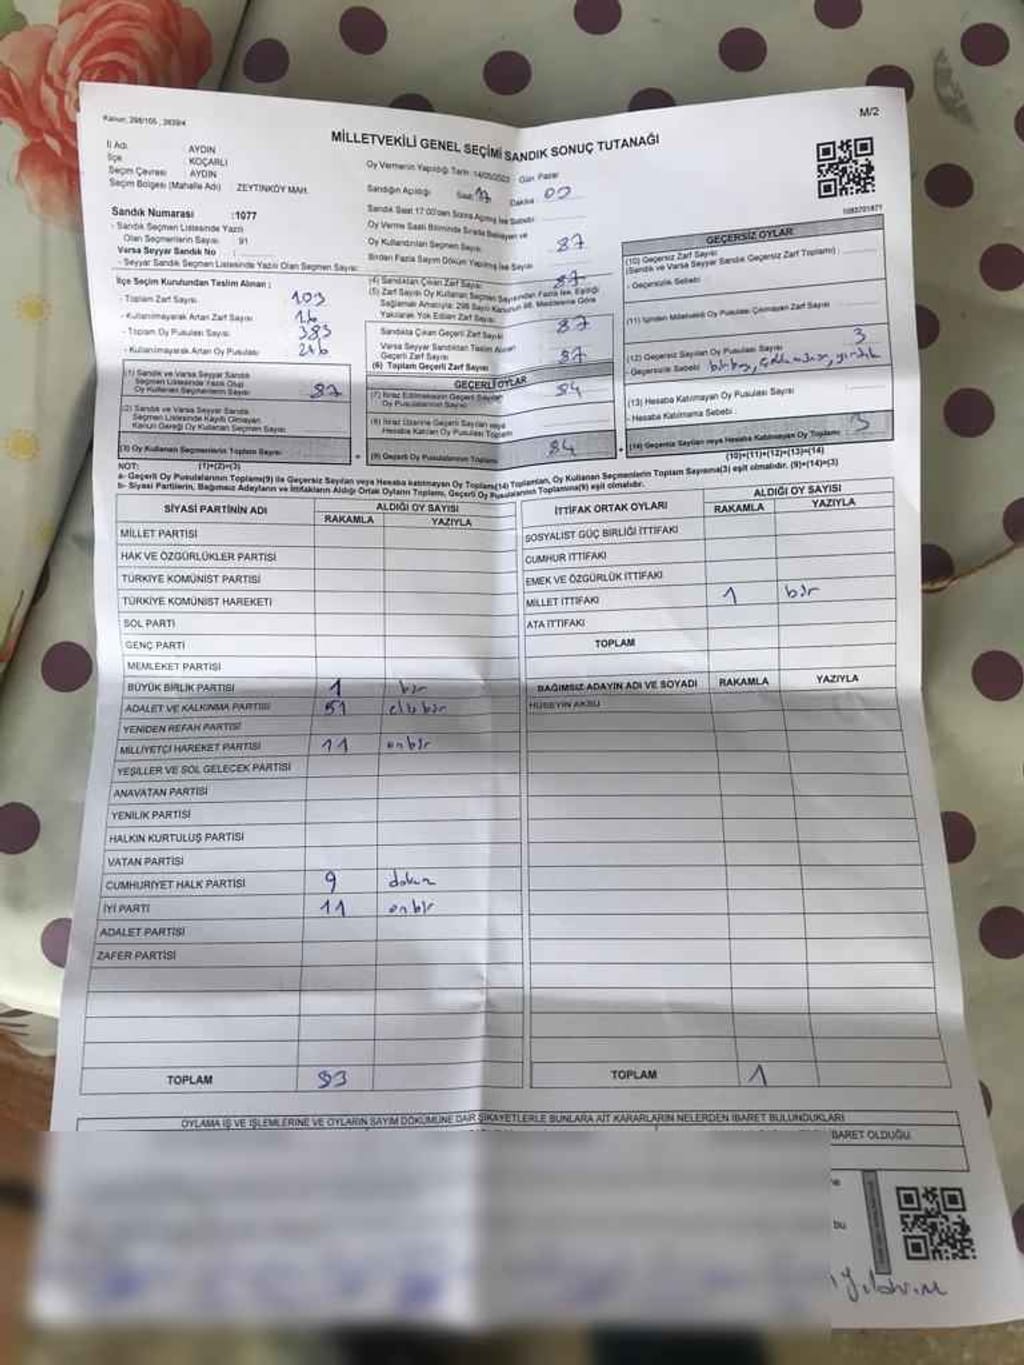 Kanun: 298/105 , 2839/4
M/2
MİLLETVEKİLİ GENEL SEÇİMİ SANDIK SONUÇ TUTANAĞI
İl Adı : AYDIN
İlçe : KOÇARLI
Seçim Çevresi : AYDIN
Seçim Bölgesi (Mahalle Adı) ZEYTİNKÖY MAH.
Oy Vermenin Yapıldığı Tarih :14/05/2023 - Gün: Pazar
Sandığın Açıldığı Saat 17 Dakika 00
Sandık Saat 17:00'den Sonra Açılmış İse Sebebi:
Oy Verme Saati Bitiminde Sırada Bekleyen ve
Oy Kullandırılan Seçmen Sayısı 87
Birden Fazla Sayım Döküm Yapılmış İse Sayısı
1083701877
Sandık Numarası :1077
- Sandık Seçmen Listesinde Yazılı
Olan Seçmenlerin Sayısı 91
Varsa Seyyar Sandık No :
- Seyyar Sandık Seçmen Listesinde Yazılı Olan Seçmen Sayısı:
İlçe Seçim Kurulundan Teslim Alınan :
- Toplam Zarf Sayısı 103
- Kullanılmayarak Artan Zarf Sayısı 16
- Toplam Oy Pusulası Sayısı 383
- Kullanılmayarak Artan Oy Pusulası
(1) Sandık ve Varsa Seyyar Sandık
Seçmen Listesinde Yazılı Olup
Oy Kullanan Seçmenlerin Sayısı 87
(2) Sandık ve Varsa Seyyar Sandık
Seçmen Listesinde Kayıtlı Olmayan
Kanun Gereği Oy Kullanan Seçmen Sayısı
(3) Oy Kullanan Seçmenlerin Toplam Sayısı
(1)+(2)=(3)
(4) Sandıktan Çıkan Zarf Sayısı 87
(5) Zarf Sayısı Oy Kullanan Seçmen Sayısından Fazla İse, Eşitliği
Sağlamak Amacıyla; 298 Sayılı Kanunun 98. Maddesine Göre
Yakılarak Yok Edilen Zarf Sayısı
Sandıkta Çıkan Geçerli Zarf Sayısı 87
Varsa Seyyar Sandıktan Teslim Alınan
Geçerli Zarf Sayısı 87
(6) Toplam Geçerli Zarf Sayısı
GEÇERLİ OYLAR
(7) İtiraz Edilmeksizin Geçerli Sayılan
Oy Pusulalarının Sayısı 84
(8) İtiraz Üzerine Geçerli Sayılan veya
Hesaba Katılan Oy Pusulası Toplamı
(9) Geçerli Oy Pusulalarının Toplamı 84
GEÇERSİZ OYLAR
(10) Geçersiz Zarf Sayısı
(Sandık ve Varsa Seyyar Sandık Geçersiz Zarf Toplamı)
- Geçersizlik Sebebi
(11) İçinden Milletvekili Oy Pusulası Çıkmayan Zarf Sayısı
(12) Geçersiz Sayılan Oy Pusulası Sayısı 3
- Geçersizlik Sebebi
(13) Hesaba Katılmayan Oy Pusulası Sayısı
- Hesaba Katılmama Sebebi :
(14) Geçersiz Sayılan veya Hesaba Katılmayan Oy Toplamı 3
(10)+(11)+(12)+(13)=(14)
NOT:
a- Geçerli Oy Pusulalarının Toplamı(9) ile Geçersiz Sayılan veya Hesaba Katılmayan Oy Toplamı(14) Toplamları, Oy Kullanan Seçmenlerin Toplam Sayısına(3) eşit olmalıdır. (9)+(14)=(3)
b- Siyasi Partilerin, Bağımsız Adayların ve İttifakların Aldığı Ortak Oyların Toplamı, Geçerli Oy Pusulalarının Toplamına(9) eşit olmalıdır.
SİYASİ PARTİNİN ADI ALDIĞI OY SAYISI
RAKAMLA YAZIYLA
MİLLET PARTİSİ
HAK VE ÖZGÜRLÜKLER PARTİSİ
TÜRKİYE KOMÜNİST PARTİSİ
TÜRKİYE KOMÜNİST HAREKETİ
SOL PARTİ
GENÇ PARTİ
MEMLEKET PARTİSİ
BÜYÜK BİRLİK PARTİSİ 1 bir
ADALET VE KALKINMA PARTİSİ 51 elli bir
YENİDEN REFAH PARTİSİ
MİLLİYETÇİ HAREKET PARTİSİ 11 onbir
YEŞİLLER VE SOL GELECEK PARTİSİ
ANAVATAN PARTİSİ
YENİLİK PARTİSİ
HALKIN KURTULUŞ PARTİSİ
VATAN PARTİSİ
CUMHURİYET HALK PARTİSİ 9 dokuz
İYİ PARTİ 11 onbir
ADALET PARTİSİ
ZAFER PARTİSİ
TOPLAM 83
İTTİFAK ORTAK OYLARI ALDIĞI OY SAYISI
RAKAMLA YAZIYLA
SOSYALİST GÜÇ BİRLİĞİ İTTİFAKI
CUMHUR İTTİFAKI
EMEK VE ÖZGÜRLÜK İTTİFAKI
MİLLET İTTİFAKI 1 bir
ATA İTTİFAKI
TOPLAM
BAĞIMSIZ ADAYIN ADI VE SOYADI RAKAMLA YAZIYLA
HÜSEYİN AKSU
TOPLAM 1
OYLAMA İŞ VE İŞLEMLERİNE VE OYLARIN SAYIM DÖKÜMÜNE DAİR ŞİKAYETLERLE BUNLARA AİT KARARLARIN NELERDEN İBARET BULUNDUKLARI
İBARET OLDUĞU
bu
Yıldırım